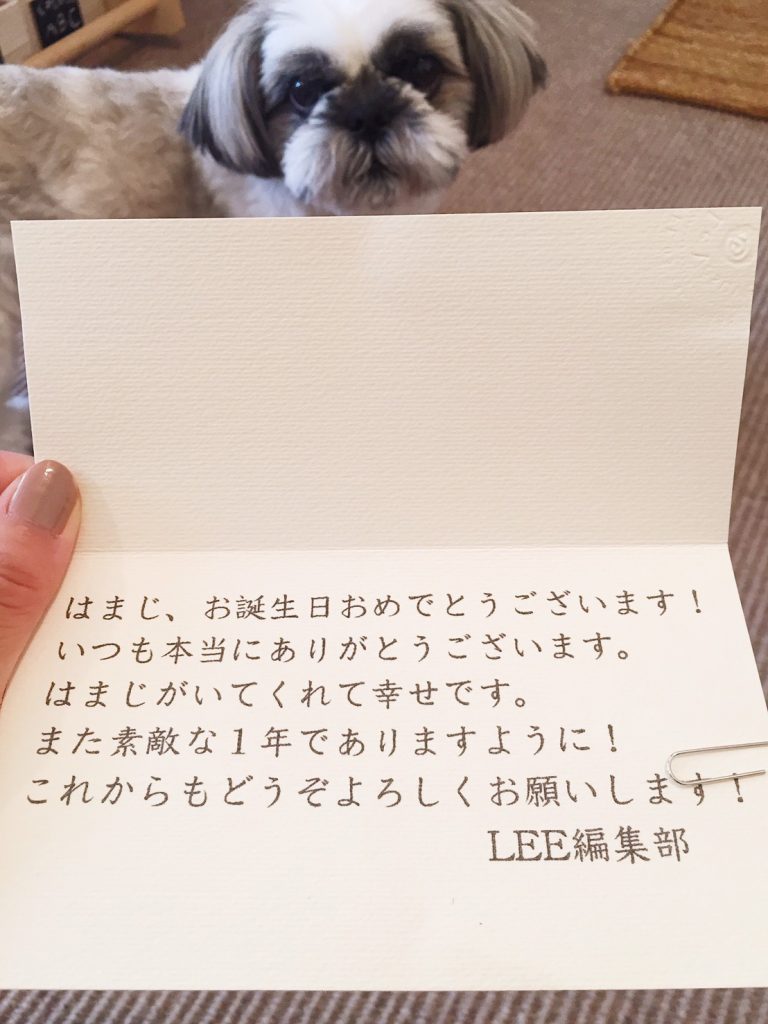 はまじ、お誕生日おめでとうございます！
いつも本当にありがとうございます。
はまじがいてくれて幸せです。
また素敵な１年でありますように！
これからもどうぞよろしくお願いします！
LEE編集部
ABC